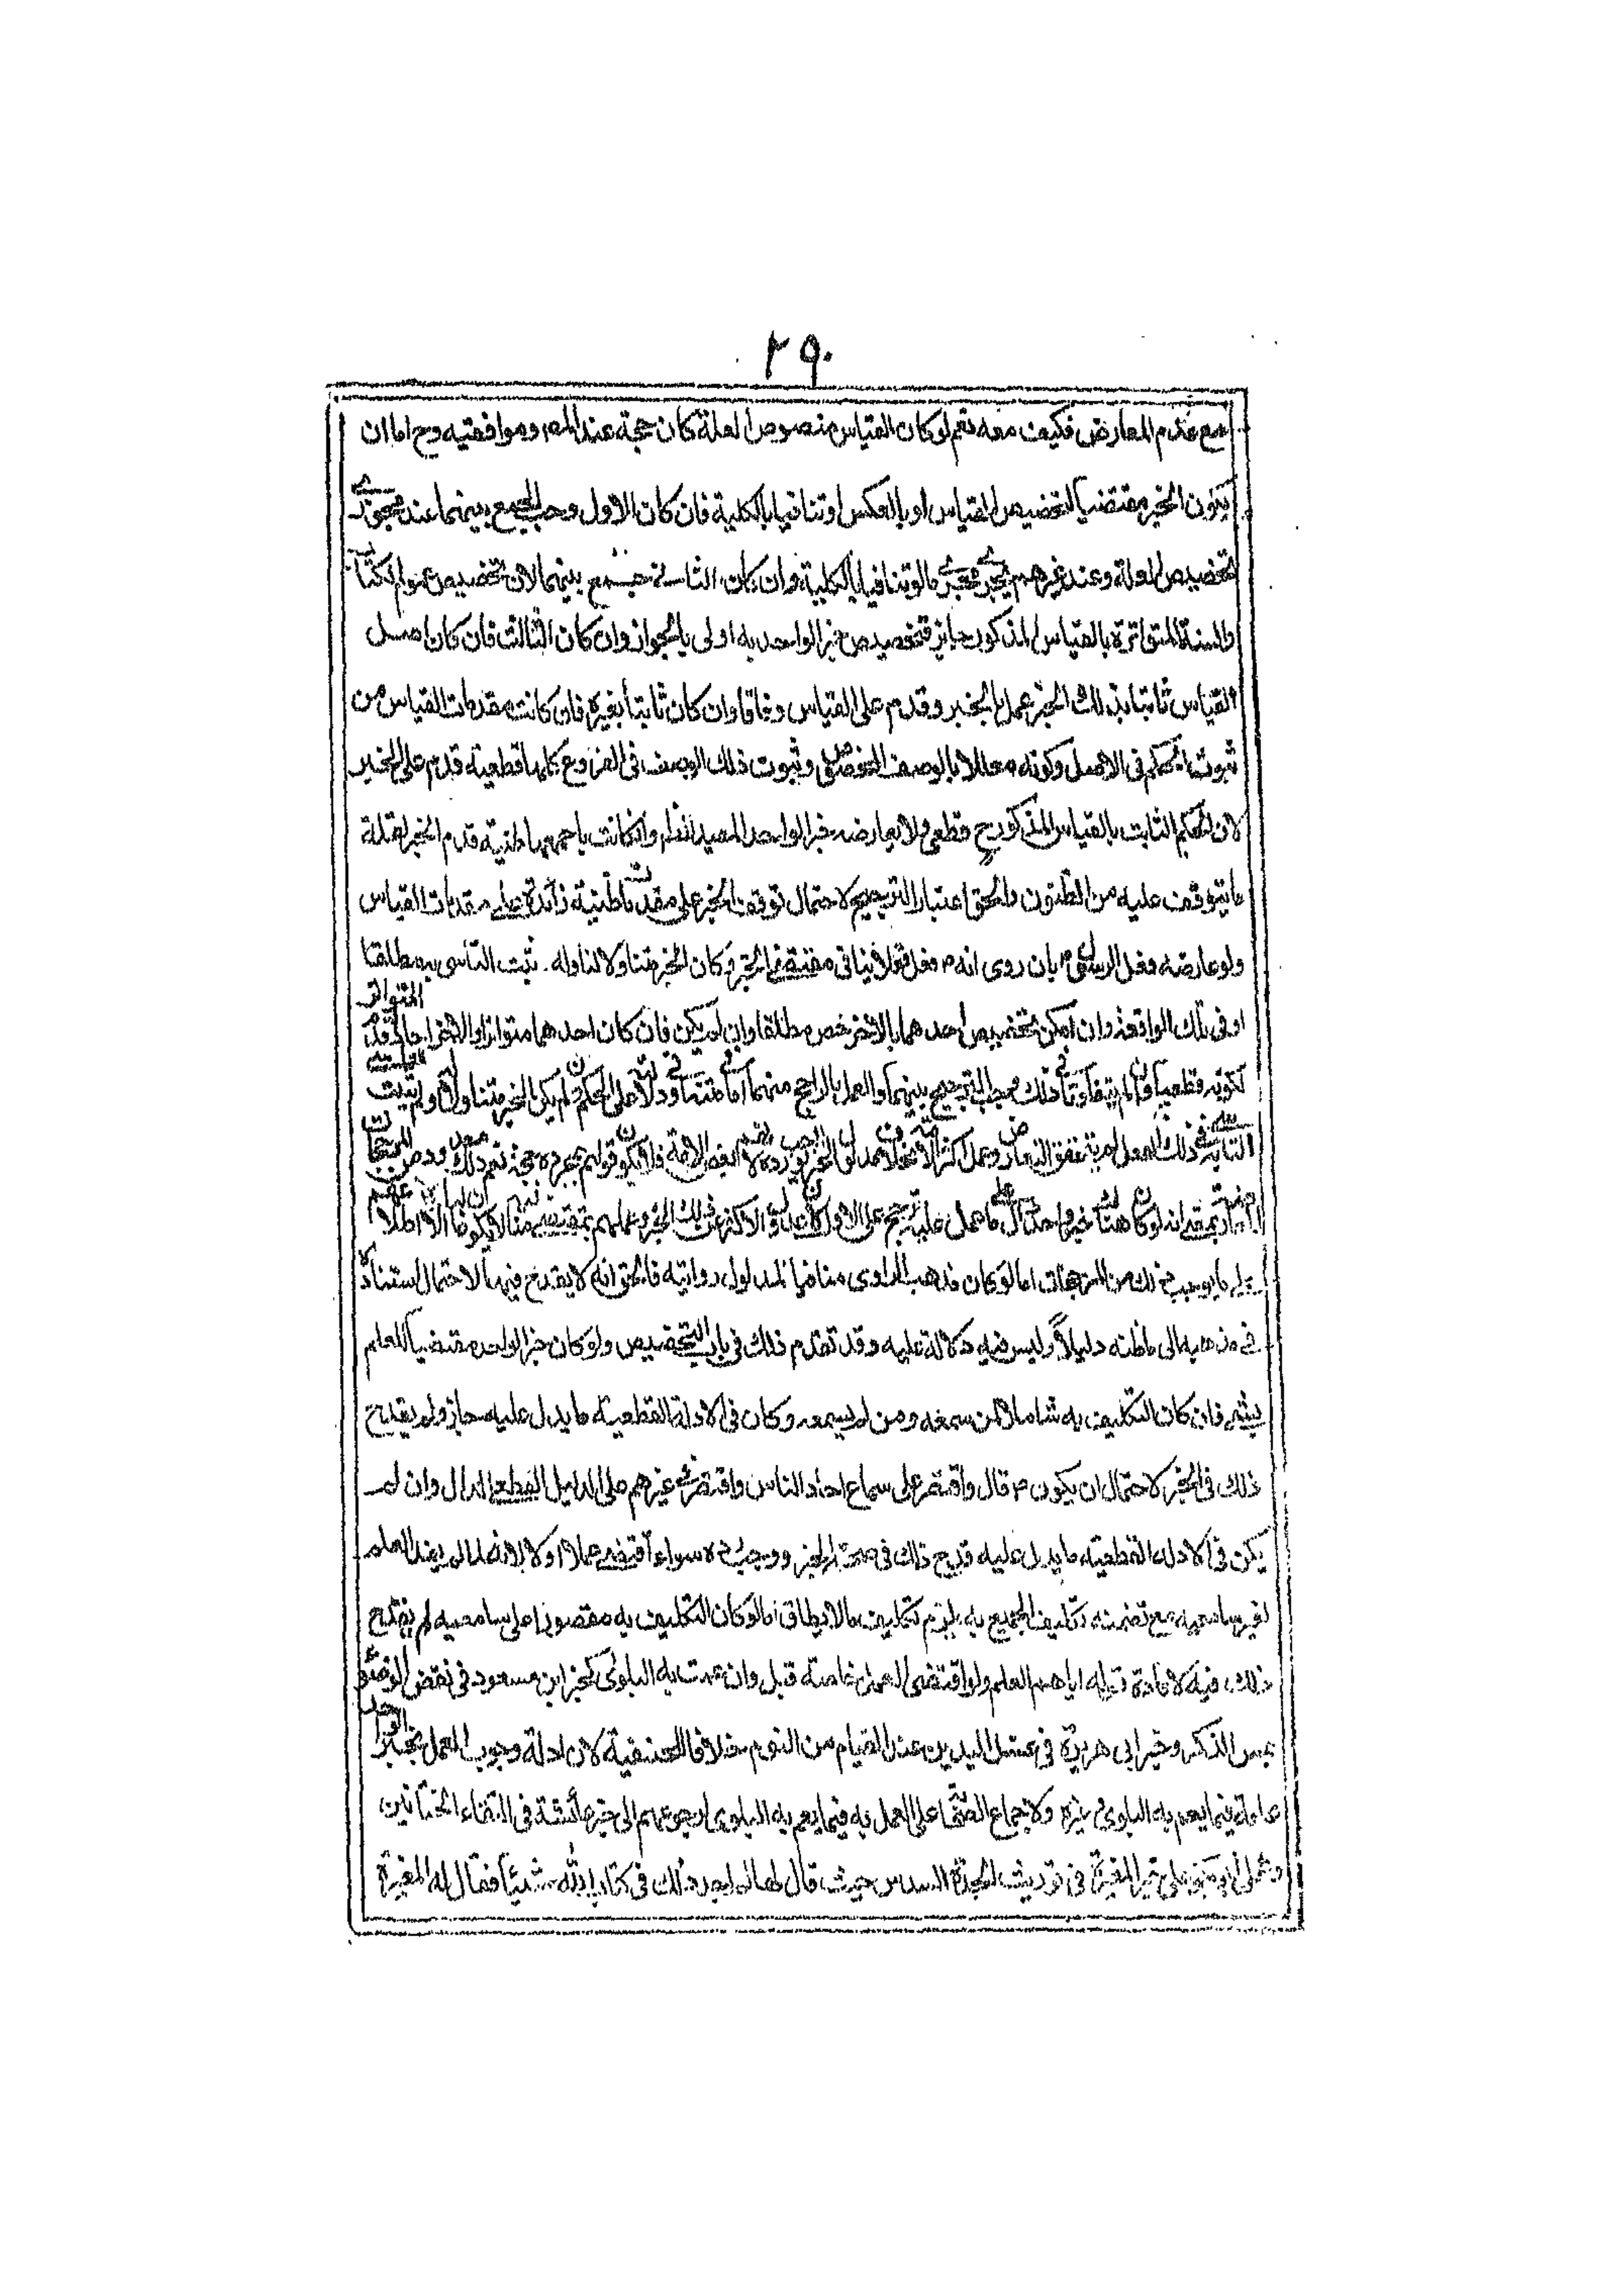 ٢٩٠
مع عدم المعارض فكيف معه نعم لو كان القياس منصوص العلة كان حجة عند المصر وموافقيه وح اما ان
يكون الخبر مقتضيا لتخصيص القياس او بالعكس او تنافيا بالكلية فان كان الاول وجب الجمع بينهما عند مجوزى
تخصيص العلة وعند غيرهم يجرى مجرى ما لو تنافيا بالكلية وان كان الثانى جمع بينهما لان تخصيص عموم الكتاب
والسنة المتواترة بالقياس المذكور جايز فتخصيص خبر الواحد به اولى بالجواز وان كان الثالث فان كان اصل
القياس ثابتا بذلك الخبر عمل بالخبر وقدم على القياس وفاقا وان كان ثابتا بغيره فان كانت مقدمات القياس من
ثبوت الحكم فى الاصل وكونه معللا بالوصف المخصوص وثبوت ذلك الوصف فى الفروع كلها قطعية قدم على الخبر
لان الحكم الثابت بالقياس المذكور ح قطعى ولا يعارضه خبر الواحد المفيد للظن وان كانت باجمعها ظنية قدم الخبر لقلة
ما يتوقف عليه من الظنون والحق اعتبار الترجيح لاحتمال توقف الخبر على مقدمات ظنية زائدة على مقدمات القياس
ولو عارضه فعل الرسول م بان روى انه م فعل فعلا ينافى مقتضى الخبر وكان الخبر متناولا لنا وله ثبت التأسى به مطلقا
او فى تلك الواقعة وان امكن تخصيص احدهما بالاخر خص مطلقا وان لم يكن فان كان احدهما متواترا والاخر احادا قدم المتواتر
لكونه قطعيا وان لم يتفاوتا فى ذلك وجب الترجيح بينهما والعمل بالراجح منهما اما متنا او دلالة على الحكم وان لم يكن الخبر متناولا له ولم يثبت
التأسى فى ذلك الفعل لم يتحقق التعارض وعمل اكثر الامة بخلاف مدلول الخبر لا يوجب رده لانهم بعض الامة فلا يكون قولهم بمجرده حجة نعم ذلك معدود من المرجحات
على ما يوجب ذلك من المرجحات اما لو كان مذهب الراوى منافيا لمدلول روايته فالحق انه لا يقدح فيها لاحتمال استناده
فى مذهبه الى ما ظنه دليلا وليس فيه دلالة عليه وقد تقدم ذلك فى باب التخصيص ولو كان خبر الواحد مقتضيا للعلم
بشئ فان كان التكليف به شاملا لمن سمعه ومن لم يسمعه وكان فى الادلة القطعية ما يدل عليه جاز ولم يقدح
ذلك فى الخبر لاحتمال ان يكون م قال واقتصر على سماع احاد الناس واقتصر فى غيرهم على الدليل القطعى الدال وان لم
يكن فى الادلة القطعية ما يدل عليه قدح ذلك فى صحة الخبر ووجب رده سواء اقتضى عملا او لا لانه لما لم يفد العلم
لغير سامعيه مع تضمنه تكليف الجميع به يلزم تكليف ما لا يطاق اما لو كان التكليف به مقصورا على سامعيه لم يقدح
ذلك فيه لافادة قوله اياهم العلم ولو اقتضى العمل خاصة قبل وان عمت به البلوى كخبر ابن مسعود فى نقض الوضوء
بمس الذكر وخبر ابى هريرة فى غسل اليدين عند القيام من النوم خلافا للحنفية لان ادلة وجوب العمل بخبر الواحد
عامة فيما يعم به البلوى وغيره ولاجماع الصحابة على العمل به فيما يعم به البلوى لرجوعهم الى خبر عائشة فى التقاء الختانين
وعمل ابى بكر على خبر المغيرة فى توريث الجدة السدس حيث قال لها لم اجد لك فى كتاب الله شيئا فقال له المغيرة